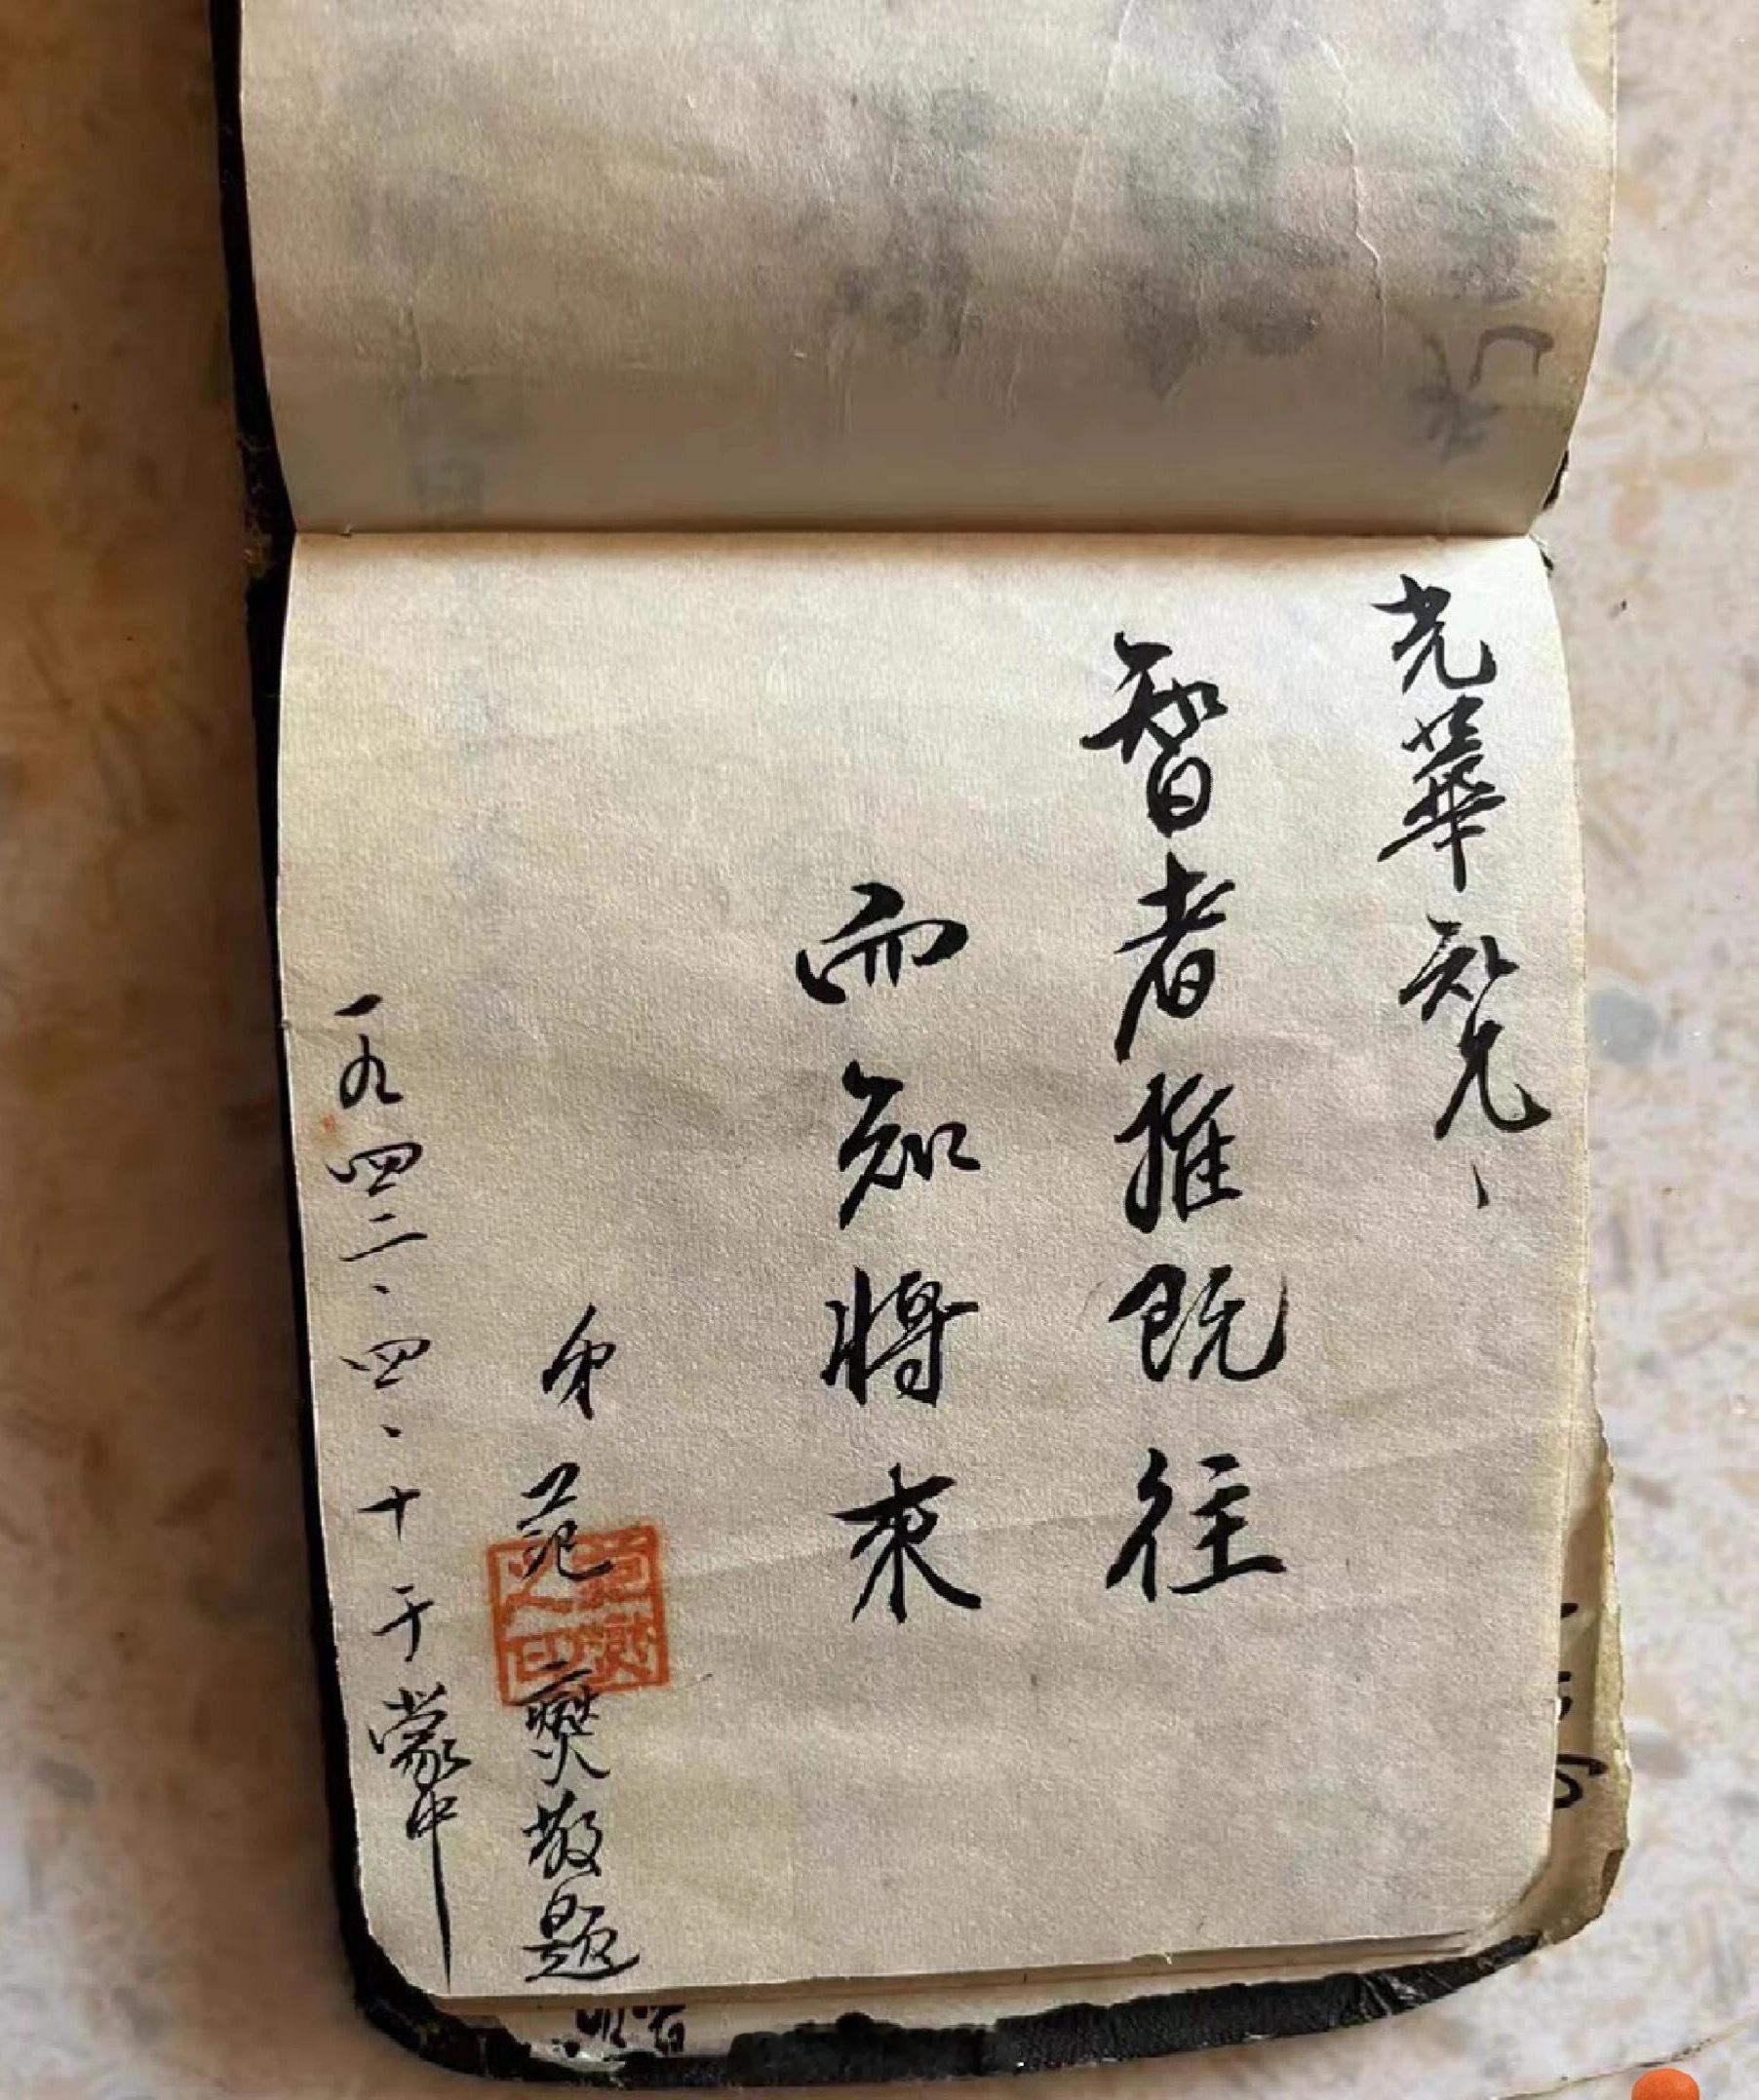 光華知兄、
智者推既往
而知將來
弟范爕敬題
一九四二、四、十于蒙中